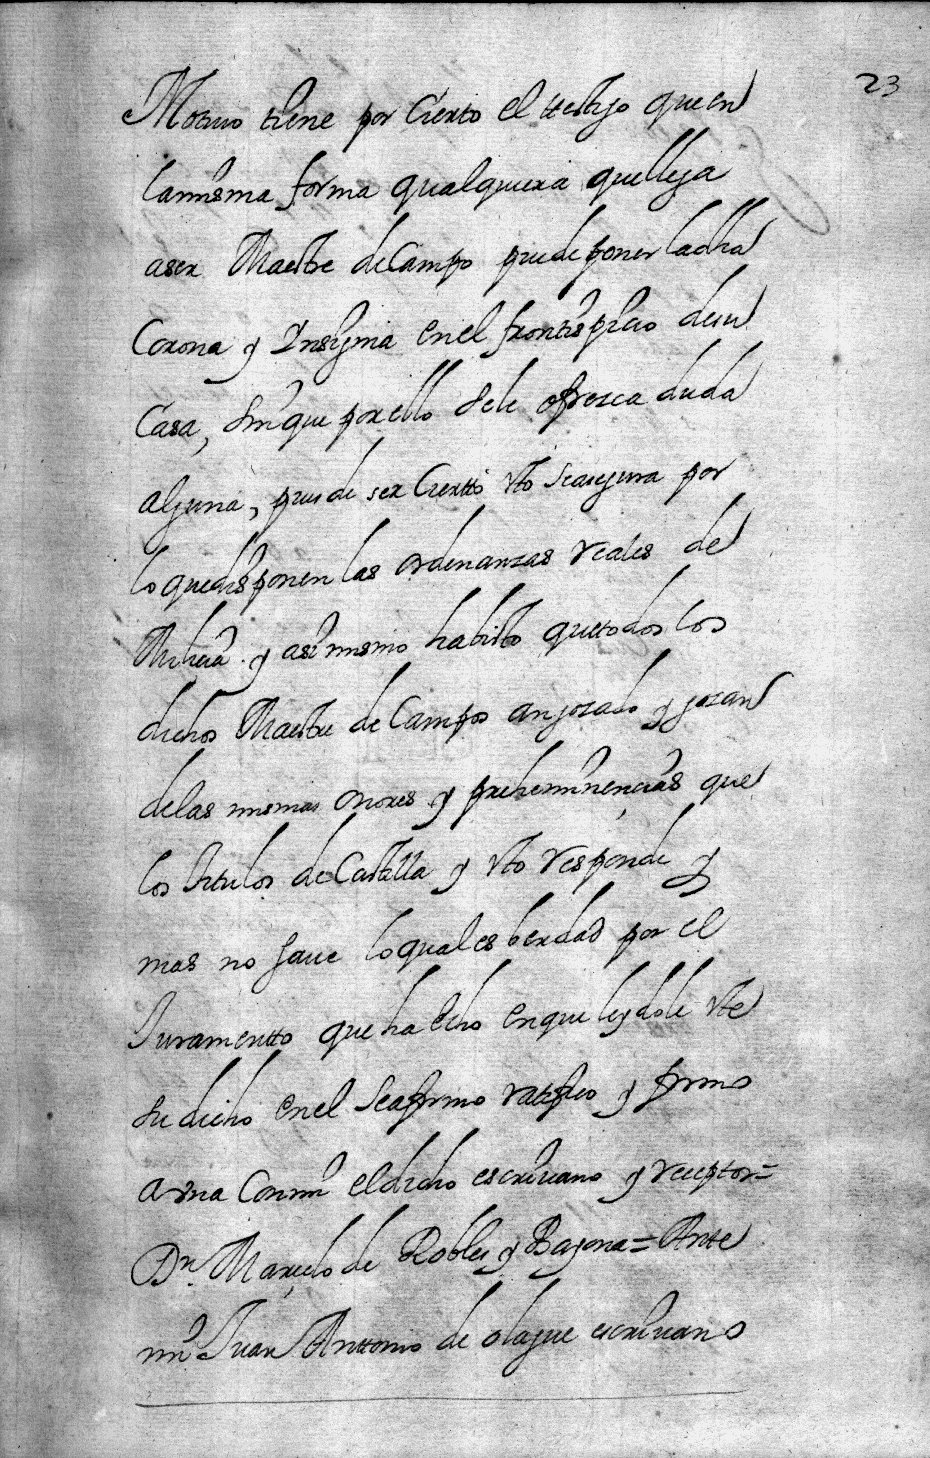 23
Motiuo tiene por Cierto el ttestigo que en
lamisma forma qualquiera quellega
aser Maestre de Campo puede poner ladha
Corona y Insignia en el frontispicio desu
Casa, sin que por ello se le ofresca duda
alguna, puede ser Ciertto Vto seasegura por
lo quedisponen las ordenanzas reales de
Milicia y asi mismo ha bisto quettodos los
dichos Maestre de Campos angozado y gozan
delas mismas onores y preheminencias que
los titulos de Castilla y Vto responde y
mas no saue lo qual es berdad por el
Juramentto que ha echo en que leydole Vte
su dicho en el seafirmo ratifico y firmo
Con mi el dicho escriuano y receptor =
Dn. Marcelo de Robles y Bayona = Ante
mi Juan Anttonio de olague escriuano